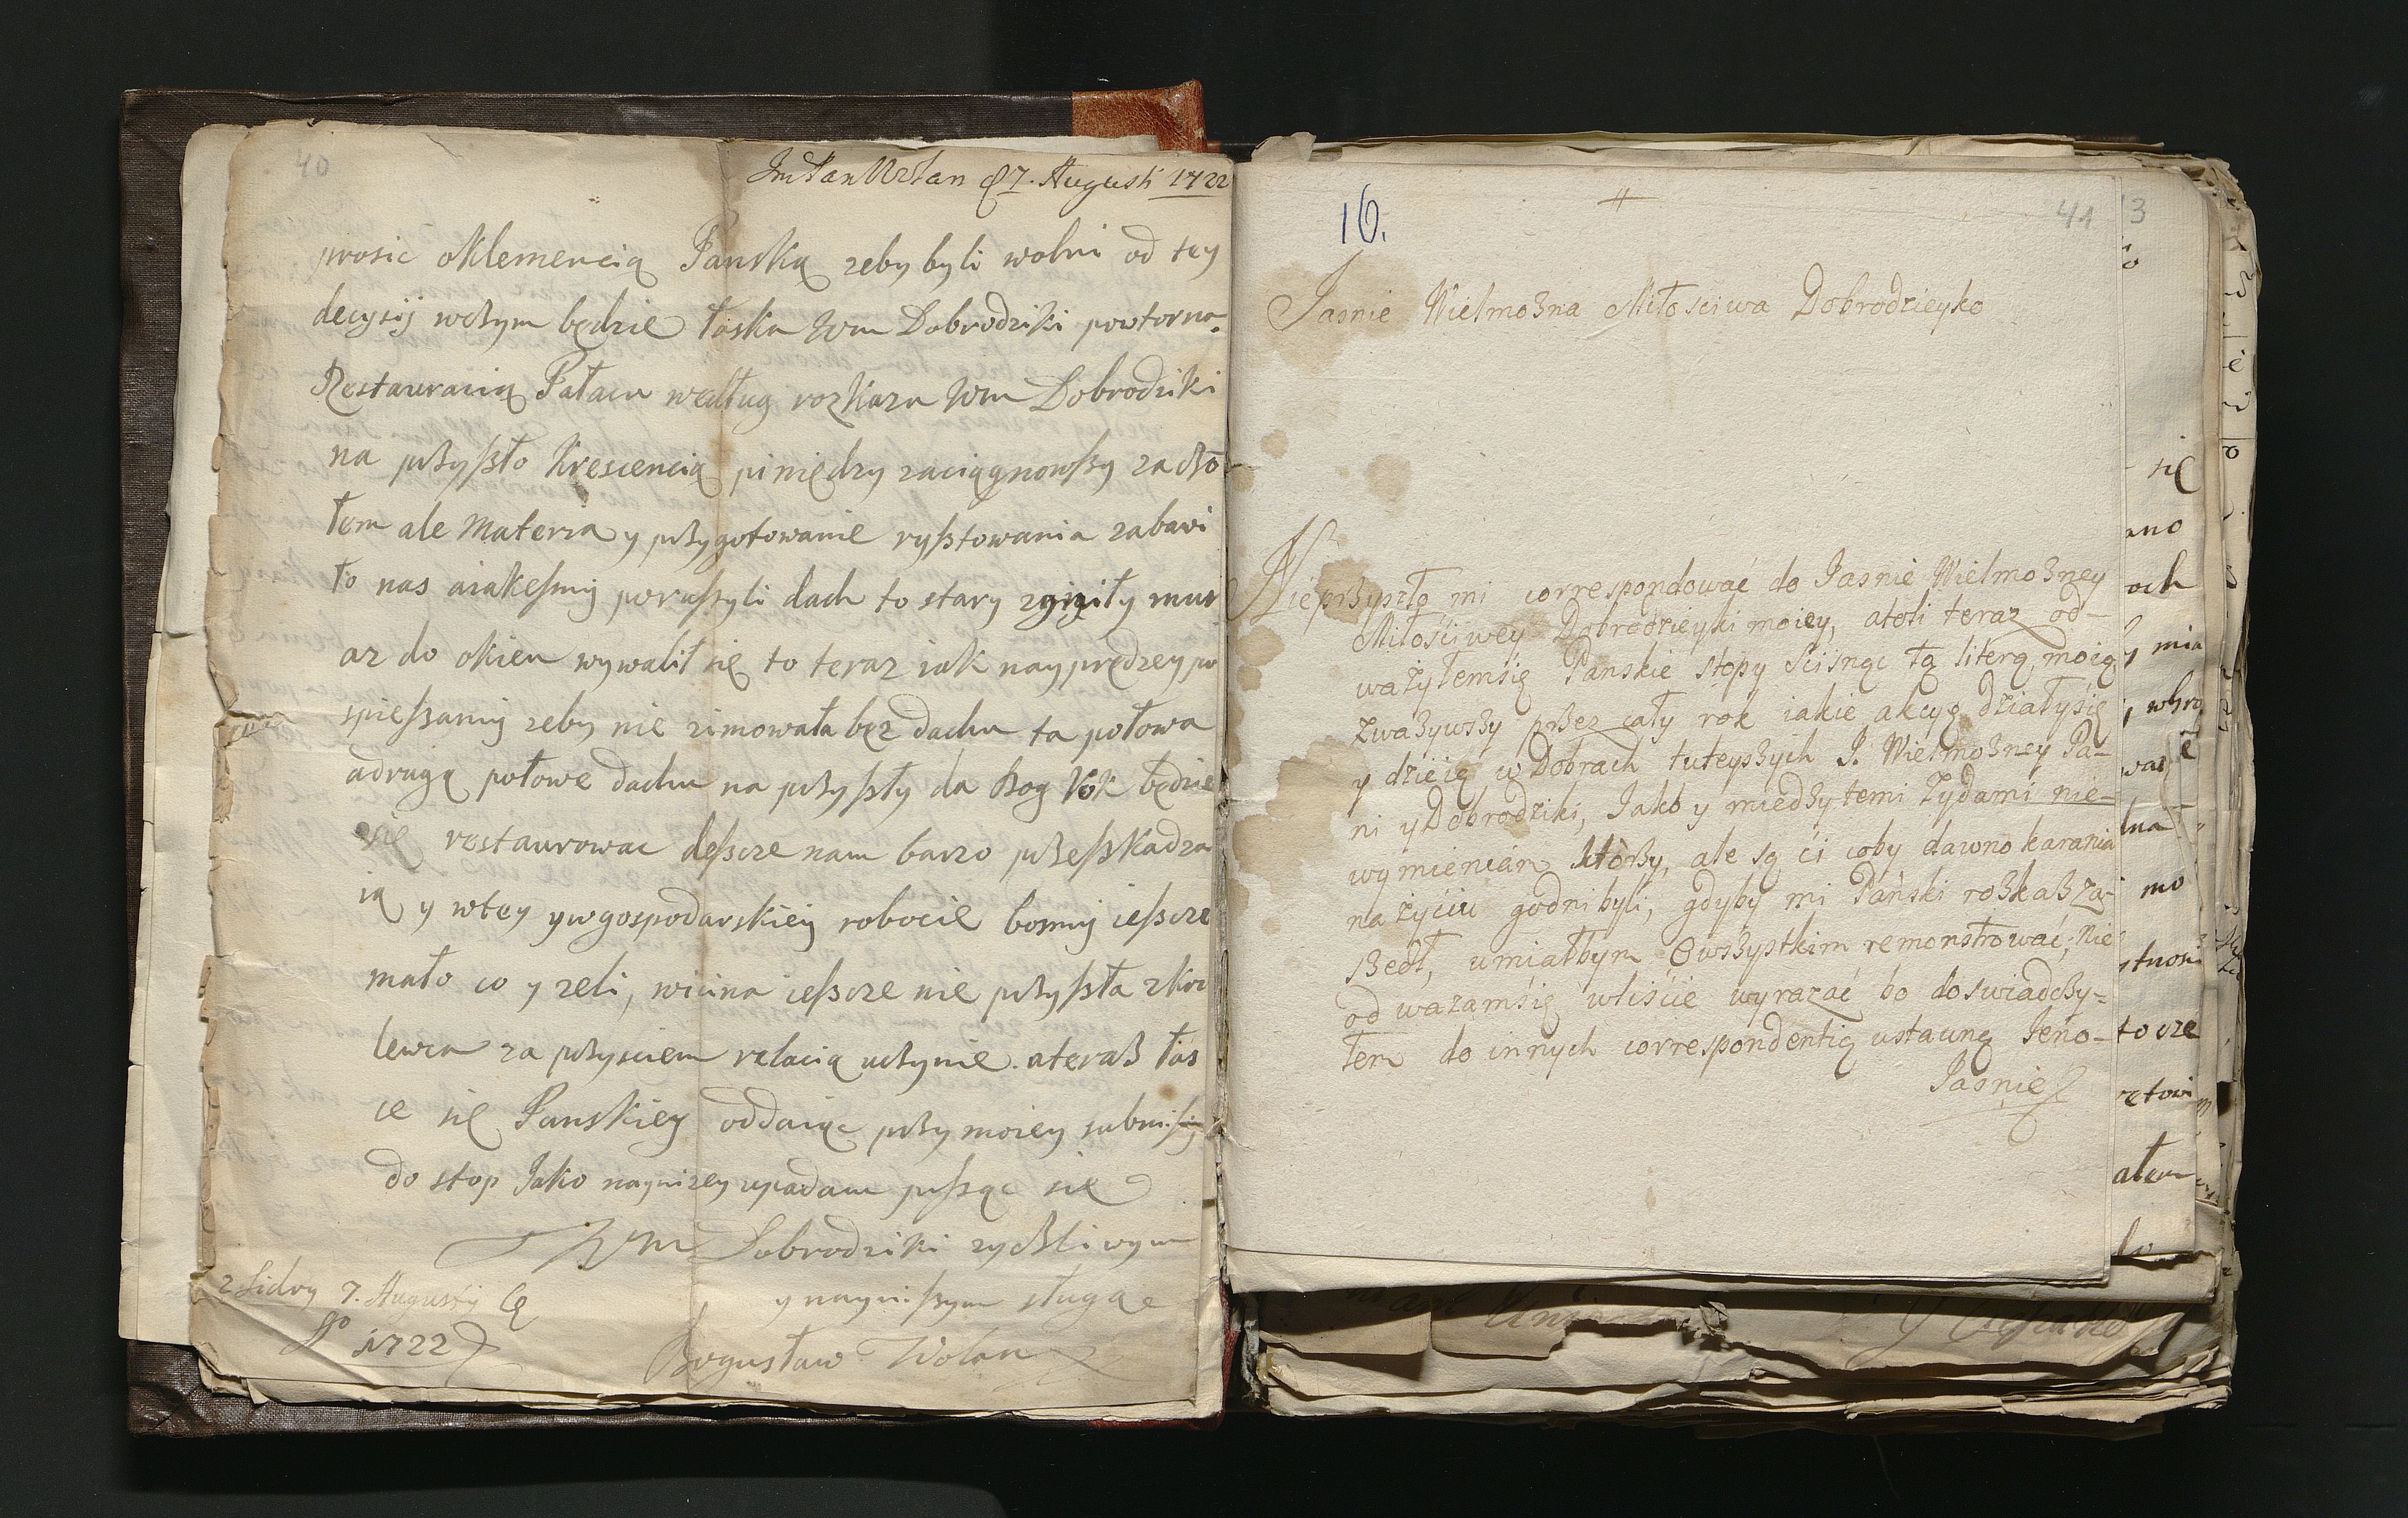 40
7. Augusti 1722
prosic oklemencią Panską zeby byli wolni od tey
decysij wczym będzie łaska Wm Dobrodziki powtorna.
Restauracią Pałacu według rozkazu Wm Dobrodziki
na przyszło krescencią piniędzy zaciągnowszy zaczo
łem ale materza y przygotowanie rysztowania zabawi
ło nas aiakesmy poruszyli dach to stary zgniły mur
az do okien wywalił się to teraz iak nayprędzey po
spieszamy zeby nie zimowała bez dachu ta połowa
adrugą połowe dachu na przyszły da Bog rok będzie
się restaurowac deszcze nam barzo przeszkadza
ią y wtey ywgospodarskiey robocie bosmy ieszcze
mało co y zeli, wicina ieszcze nie przyszła zkro
lewca za przysciem relacią uczynie. ateraz łas
ce się Panskiey oddaiąc przy moiey submisij
do stop Jako nayniżey upadam pisząc się
Wm Dobrodziki zyczliwym
y nayniszym sługąe
z Lidy 7. Augusti
Ao 1722
Bogusław Wolan
16.
41
Jasnie Wielmożna Miłosciwa Dobrodzieyko
Nieprzyszło mi correspondować do Jasnie Wielmożney
Miłościwey Dobrodzieyki moiey, atoli teraz od-
ważyłemsię Panskie stopy scisnąc tą literą moią
zważywszy przez cały rok iakie akcye działysię
y dzieią w Dobrach tuteyszych J. Wielmożney Pa-
ni y Dobrodziki, Jako y miedzytemi Zydami nie-
wymieniam ktorzy, ale są ci coby dawno karania
na życiu godni byli, gdyby mi Pański rozkaz za-
szedł, umiałbym Owszystkim remonstrować; Nie
odważamsię wliscie wyrazać bo doswiadczy-
łem do innych correspondentią ustawną Jeno-
Jasnie
3
się
ano
och
mia
mo
to cze
ałem